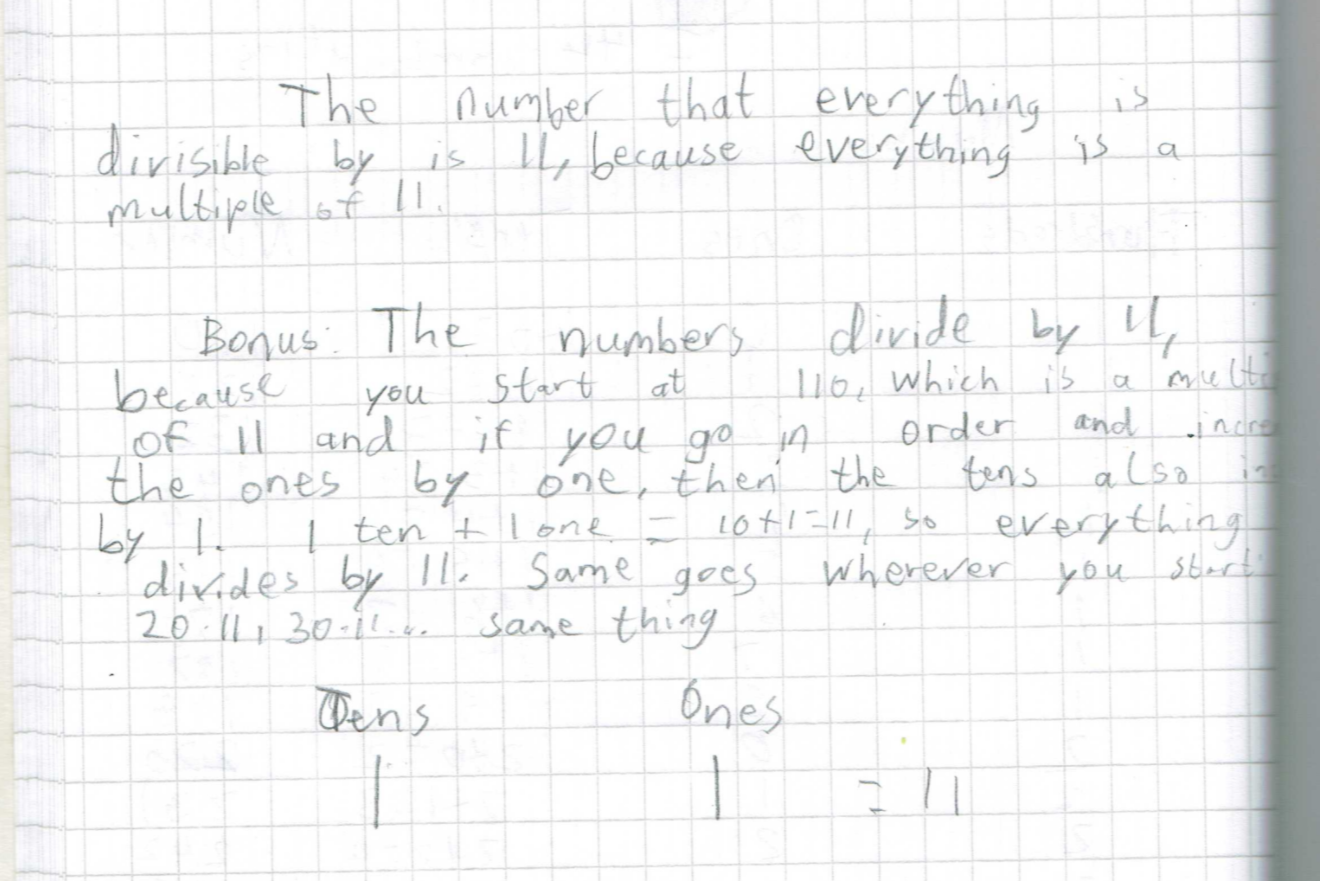 The number that everything is
divisible by is 11, because everything is a
multiple of 11.
Bonus: The numbers divide by 11,
because you start at 110, which is a multi
of 11 and if you go in order and incre
the ones by one, then the tens also in
by 1. 1 ten + 1 one = 10+1=11, so everything
divides by 11. Same goes wherever you start
20·11, 30·11... same thing
Tens Ones
1 1 = 11